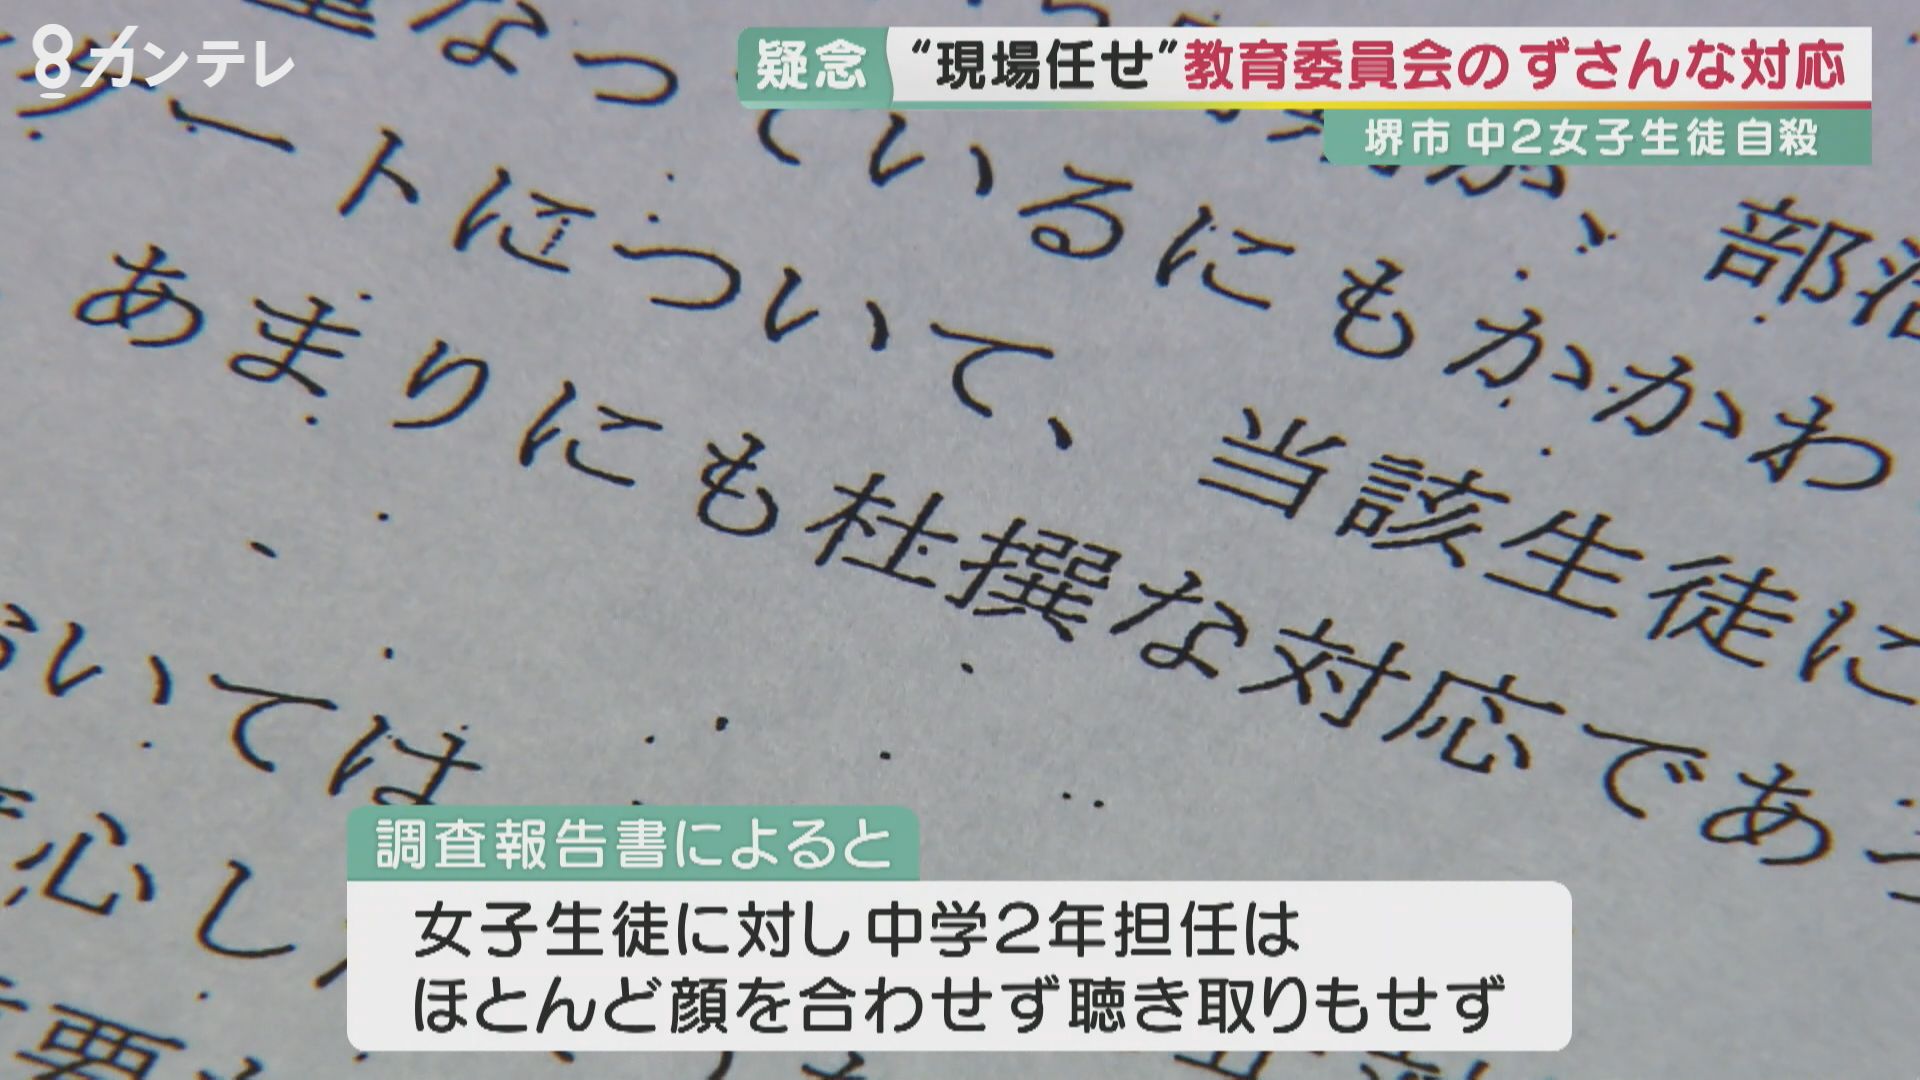 8カンテレ
疑念 “現場任せ”教育委員会のずさんな対応
堺市 中2女子生徒自殺
なっているにもかかわ
が、部
ートについて、当該生徒に
あまりにも杜撰な対応であ
いては
心し
要
調査報告書によると
女子生徒に対し中学2年担任は
ほとんど顔を合わせず聴き取りもせず